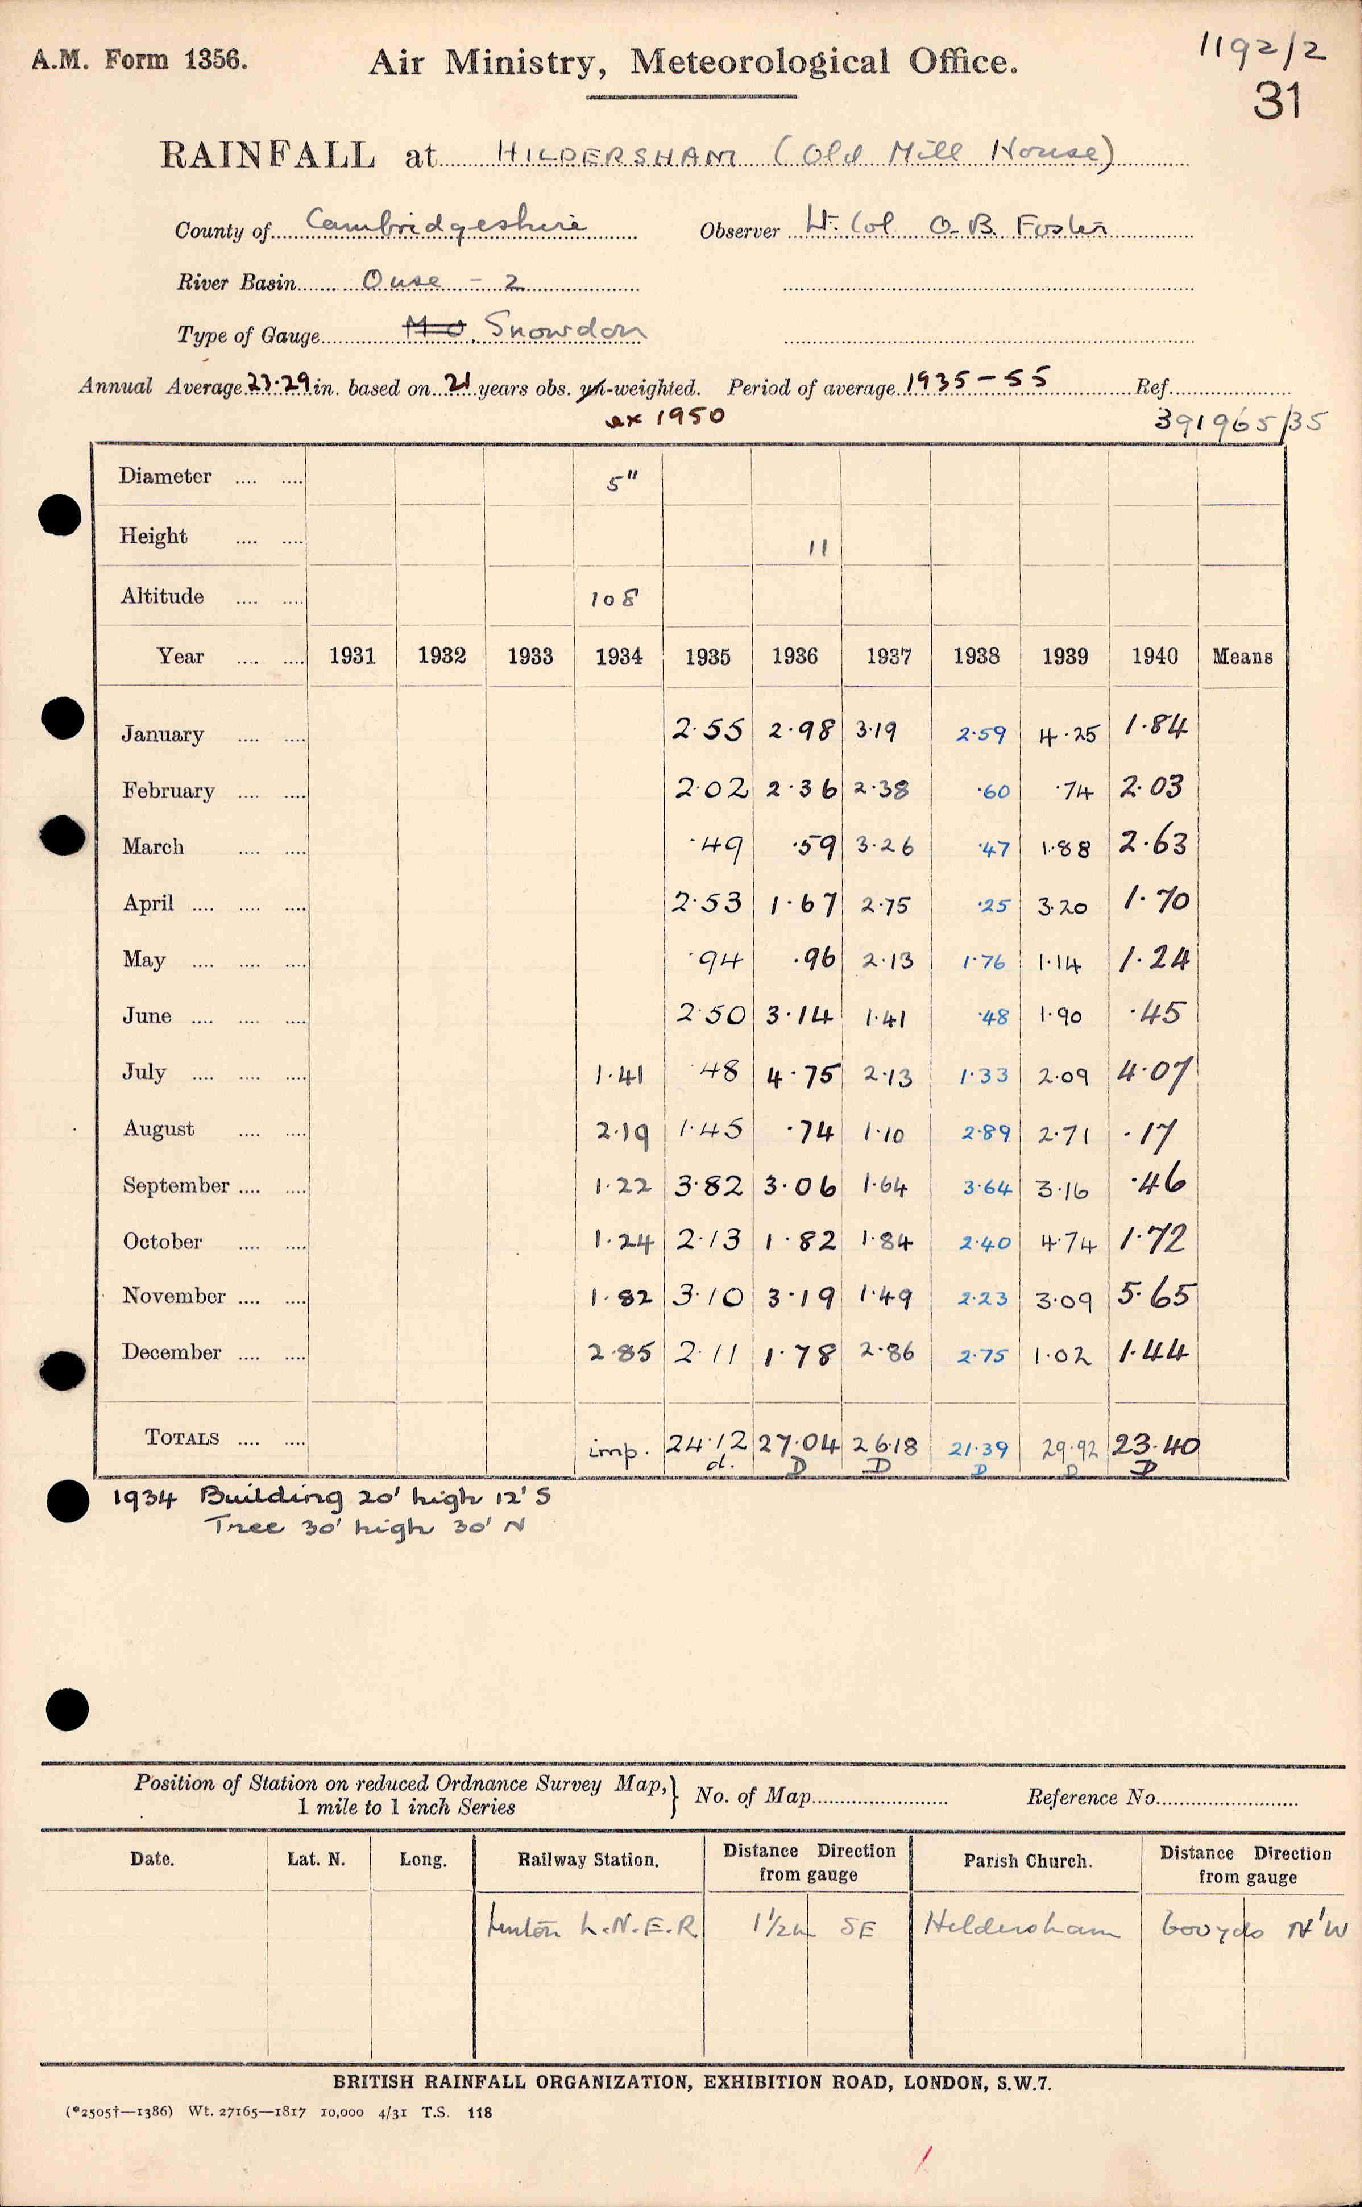 A.M. Form 1356.
Air Ministry, Meteorological Office.
1192/2
31
RAINFALL at HILDERSHAM (Old Mill House)
County of Cambridgeshire Observer Lt. Col O.B. Foster
River Basin Ouse - 2
Type of Gauge M O. Snowdon
Annual Average 23.29 in. based on 21 years obs. un-weighted. Period of average 1935-55 Ref.
ex 1950
391965/35
Diameter .... .... 5"
Height .... .... 11
Altitude .... .... 108
Year .... .... 1931 1932 1933 1934 1935 1936 1937 1938 1939 1940 Means
January .... .... 2.55 2.98 3.19 2.59 4.25 1.84
February .... .... 2.02 2.36 2.38 .60 .74 2.03
March .... .... .49 .59 3.26 .47 1.88 2.63
April .... .... .... 2.53 1.67 2.75 .25 3.20 1.70
May .... .... .... .94 .96 2.13 1.76 1.14 1.24
June .... .... .... 2.50 3.14 1.41 .48 1.90 .45
July .... .... .... 1.41 .48 4.75 2.13 1.33 2.09 4.07
August .... .... 2.19 1.45 .74 1.10 2.89 2.71 .17
September .... .... 1.22 3.82 3.06 1.64 3.64 3.16 .46
October .... .... 1.24 2.13 1.82 1.84 2.40 4.74 1.72
November .... .... 1.82 3.10 3.19 1.49 2.23 3.09 5.65
December .... .... 2.85 2.11 1.78 2.86 2.75 1.02 1.44
TOTALS .... .... imp. 24.12 27.04 26.18 21.39 29.92 23.40
d. D D D D D
1934 Building 20' high 12' S
Tree 30' high 30' N
Position of Station on reduced Ordnance Survey Map, } No. of Map Reference No.
1 mile to 1 inch Series
Date. Lat. N. Long. Railway Station. Distance Direction from gauge Parish Church. Distance Direction from gauge
Linton L.N.E.R 1½m SE Hildersham 600 yds N'W
BRITISH RAINFALL ORGANIZATION, EXHIBITION ROAD, LONDON, S.W.7.
(*2505†—1386) Wt. 27165—1817 10,000 4/31 T.S. 118